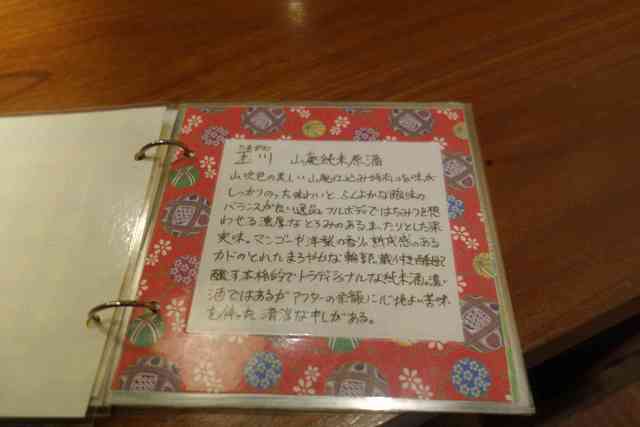 玉川 山廃純米原酒
山吹色の美しい山廃仕込み特有の旨味が
しっかりのった味わいと、ふくよかな酸味の
バランスが良い逸品。フルボディではちみつを想
わせる濃厚なとろみのあるまったりとした果
実味。マンゴーや洋梨の香り。熟成感のある
カドのとれたまろやかな輪郭。蔵付き酵母で
醸す本格的でトラディショナルな純米酒。濃い
酒ではあるがアフターの余韻に心地よい苦味
を伴った清涼なキレがある。